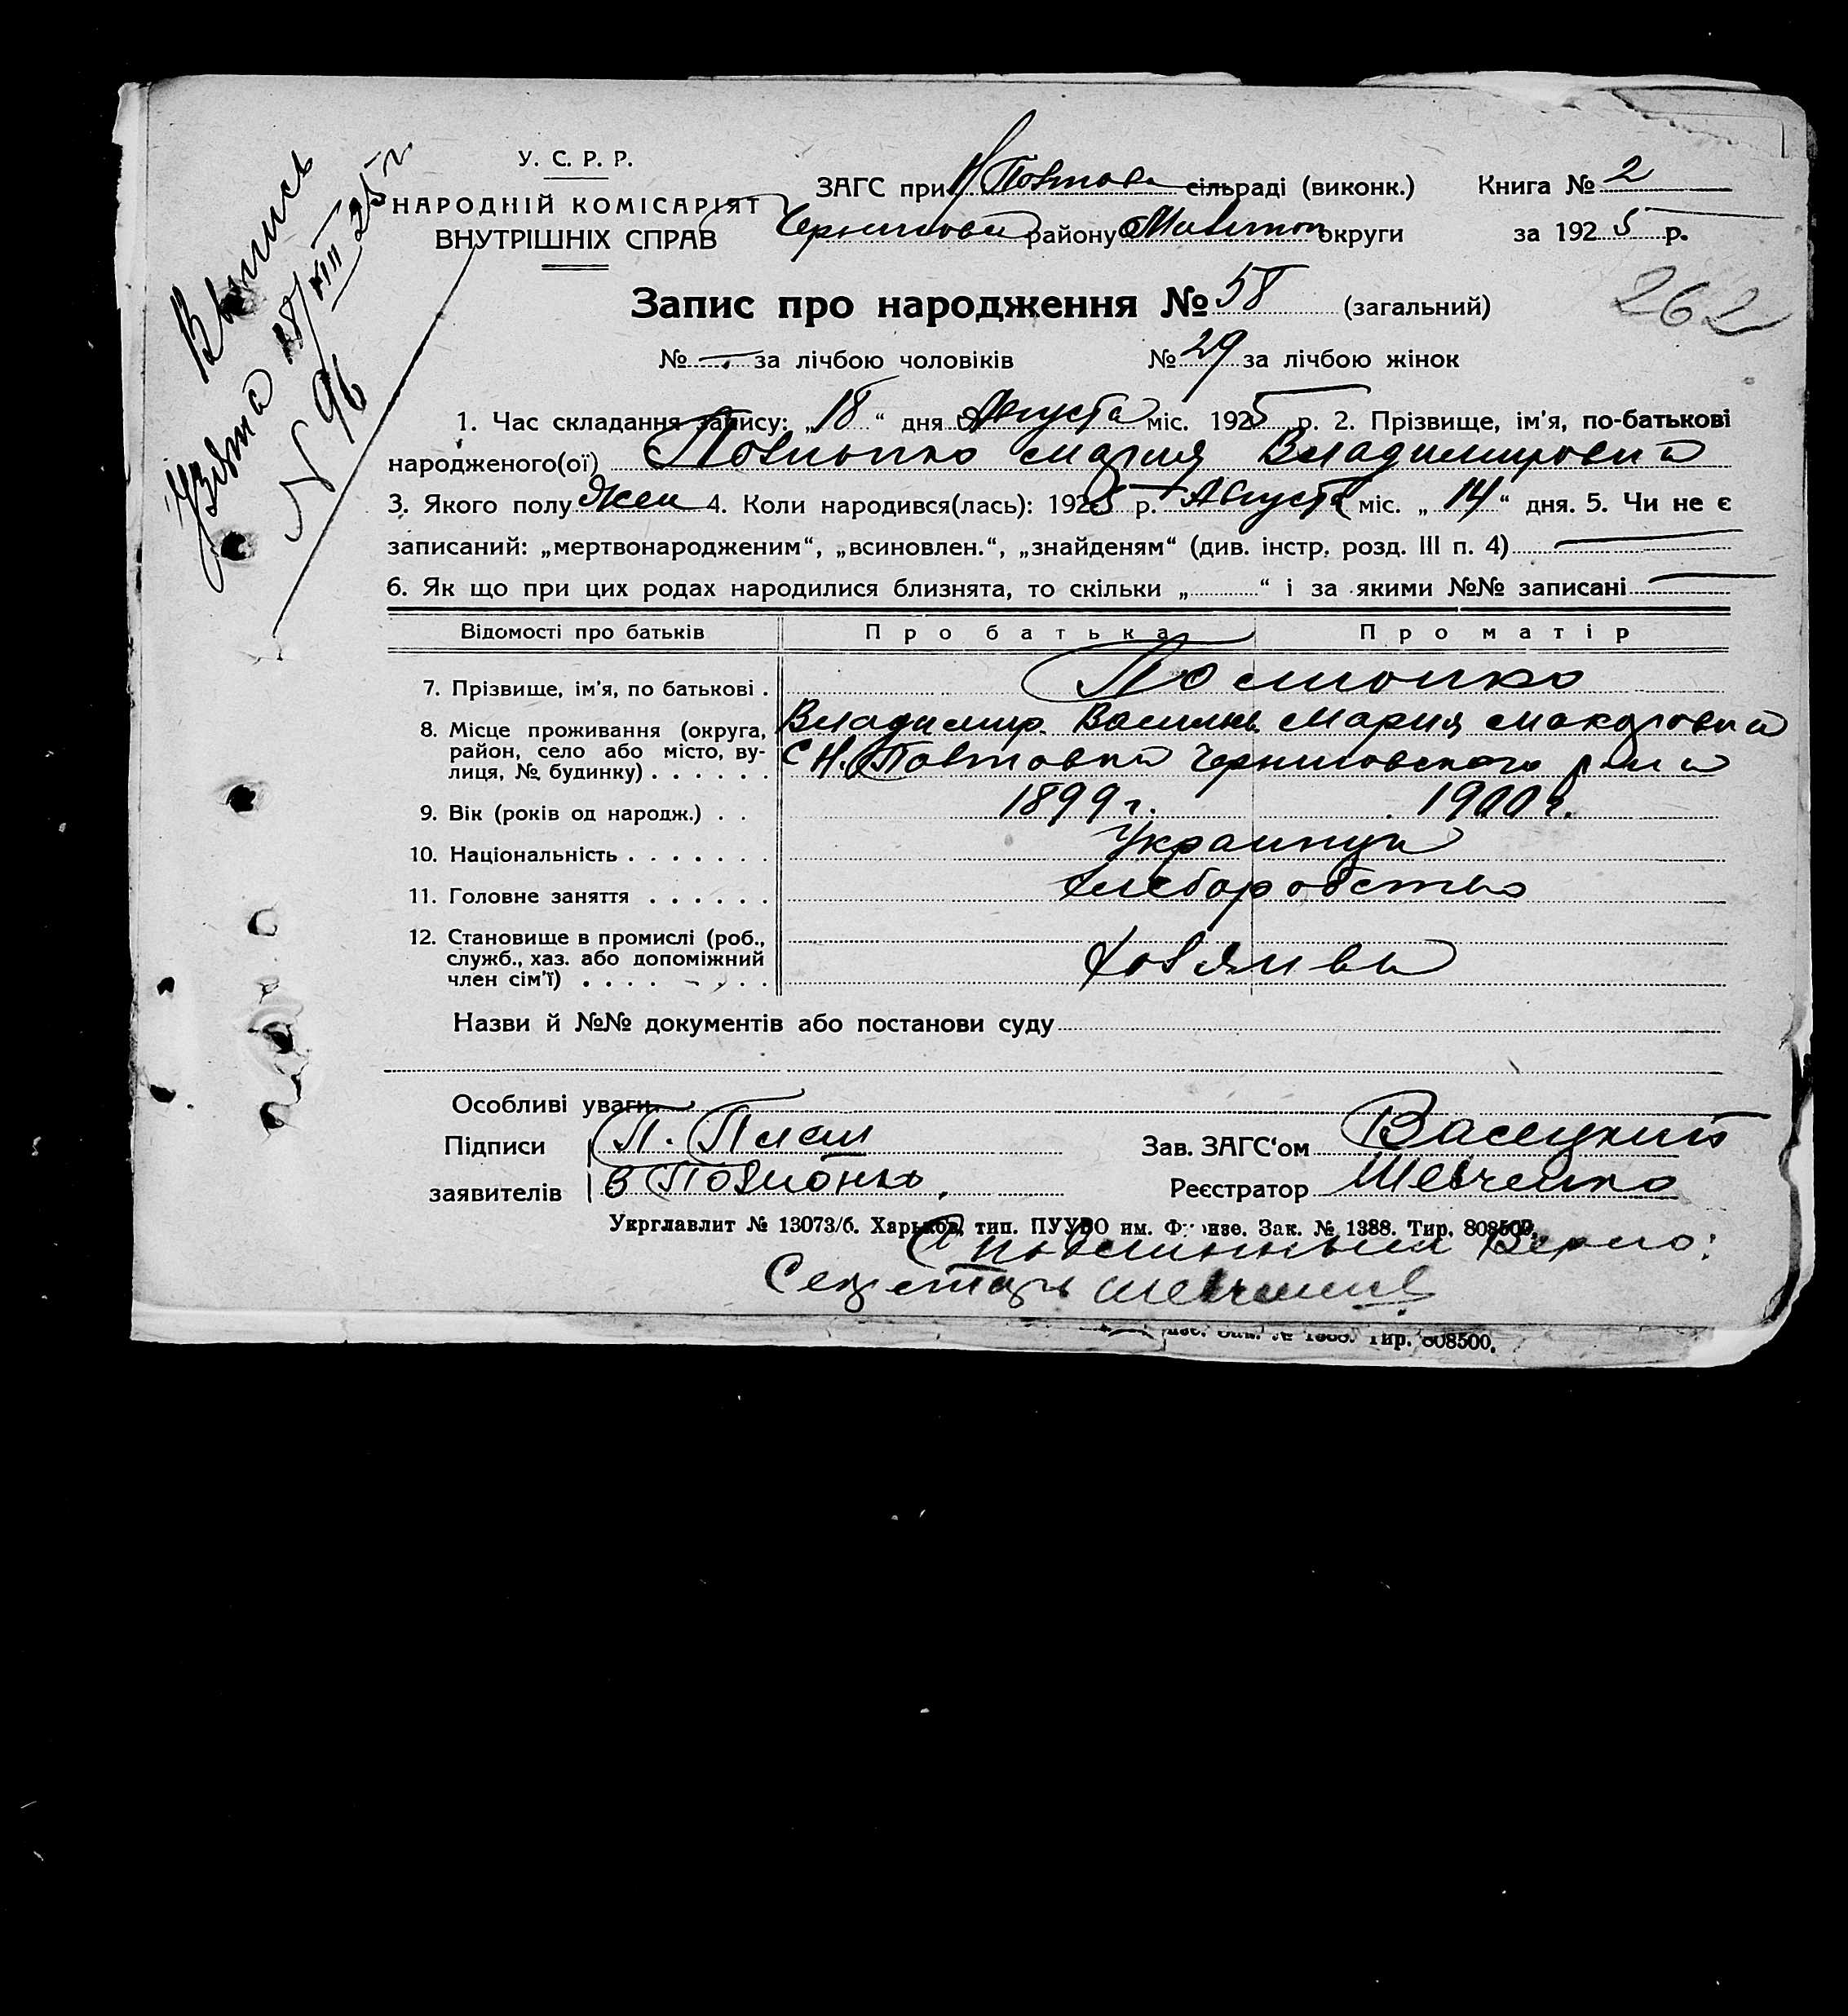 Выпись
Взята 18/VIII 25 г.
N 96
У. С. Р. Р.
НАРОДНІЙ КОМІСАРІЯТ
ВНУТРІШНІХ СПРАВ
ЗАГС при Н Повтова сільраді (виконк.) Книга № 2
Черниговск району Мелитоп округи за 1925 р.
262
Запис про народження № 58 (загальний)
№ — за лічбою чоловіків № 29 за лічбою жінок
1. Час складання запису: „18“ дня Августа міс. 1925 р. 2. Прізвище, ім'я, по-батькові
народженого(ої) Мария Владимировна
3. Якого полу жен 4. Коли народився(лась): 1925 р. Августа міс. „14“ дня. 5. Чи не є
записаний: „мертвонародженим“, „всиновлен.“, „знайденям“ (див. інстр. розд. III п. 4) —
6. Як що при цих родах народилися близнята, то скільки „ “ і за якими №№ записані —
Відомості про батьків Про батька Про матір
7. Прізвище, ім'я, по батькові .
8. Місце проживання (округа, Владимир Василь. Мария Макаровна
район, село або місто, ву-
лиця, № будинку) . . . . . . с Н. Повтовка Черниговского р-на
9. Вік (років од народж.) . . 1899 г. 1900 г.
10. Національність . . . . . . . Украинцы
11. Головне заняття . . . . . . Хлеборобство
12. Становище в промислі (роб.,
служб., хаз. або допоміжний
член сім'ї) . . . . . . . Хозяива
Назви й №№ документів або постанови суду
Особливі уваги
Підписи П. Зав. ЗАГС'ом Васецкий
заявителів В Реєстратор Шевченко
Укрглавлит № 13073/б. Харьков, тип. ПУУВО им. Фрунзе. Зак. № 1388. Тир. 808500.
С подлинным Верно:
Секретарь Шевченко
Зак. № 1388. Тир. 808500.